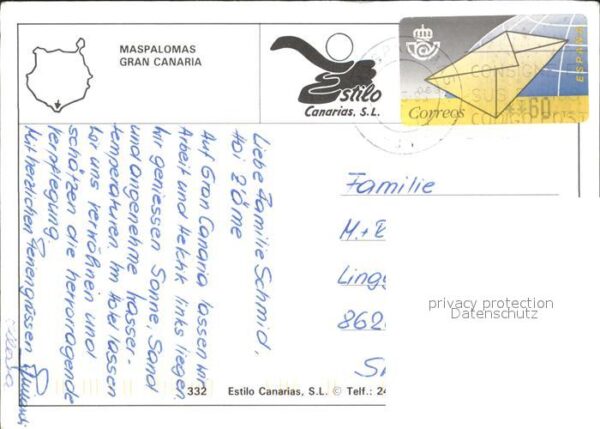 MASPALOMAS
GRAN CANARIA
Estilo
Canarias, S.L.
Correos
ESPAÑA
60
Liebe Familie Schmid,
Hoi zäme
Auf Gran Canaria lassen wir
Arbeit und Hektik links liegen.
Wir geniessen Sonne, Sand
und angenehme Wasser-
temperaturen. Im Hotel lassen
wir uns verwöhnen und
schätzen die hervorragende
Verpflegung.
Mit herzlichen Feriengrüssen
Familie
M.+
Ling
862
privacy protection
Datenschutz
332 Estilo Canarias, S.L. © Telf.: 24